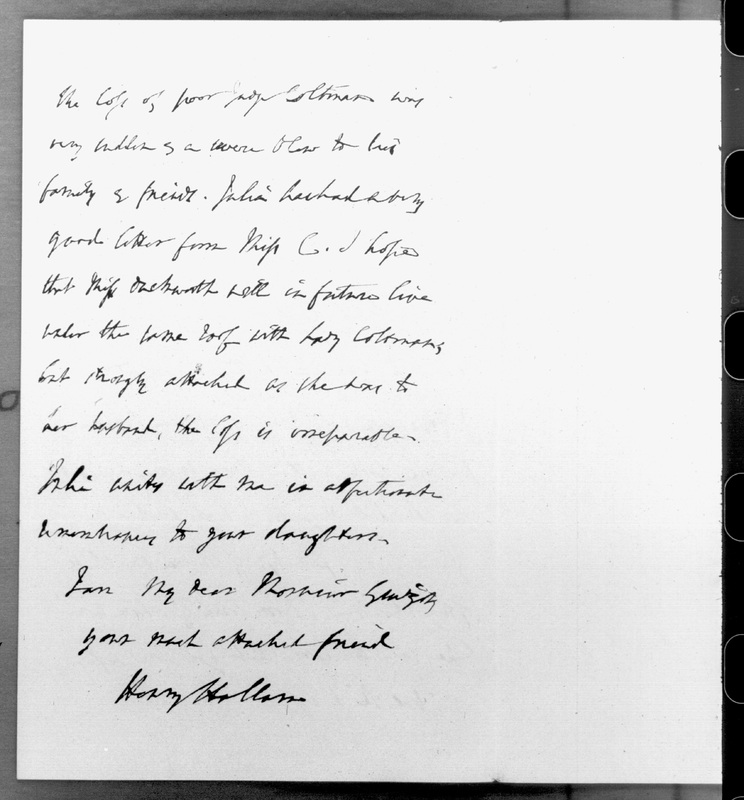 The loss of poor Judge Coltman was
very sudden & a severe blow to his
family & friends. Julia has had a very
good letter from Miss C. I hope
that Miss Duckworth will in future live
under the same roof with Lady Coltman,
but strongly attached as she was to
her husband, the loss is irreparable.
Julia unites with me in affectionate
remembrances to your daughters.
I am My dear Monsieur Guizot
your most attached friend
Henry Hallam